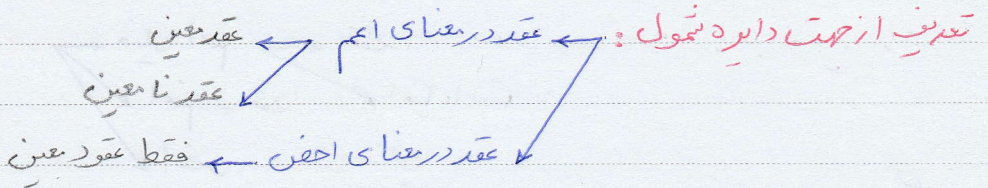 تعریف از جهت دایره شمول : عقد در معنای اعم عقد معین
عقد نا معین
عقد در معنای اخص فقط عقود معین